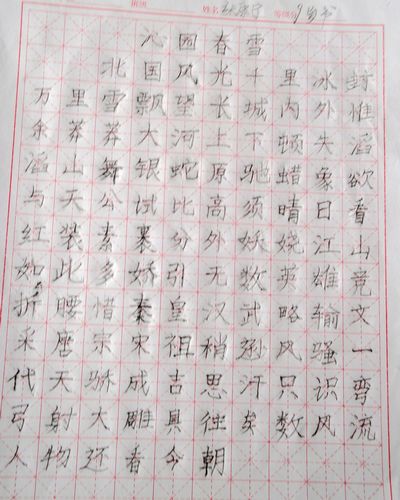 班级 姓名 等级
沁园春雪
北国风光千里冰封
万里雪飘望长城内外惟
余莽莽大河上下顿失滔
滔山舞银蛇原驰蜡象欲
与天公试比高须晴日看
红装素裹分外妖娆江山
如此多娇引无数英雄竞
折腰惜秦皇汉武略输文
采唐宗宋祖稍逊风骚一
代天骄成吉思汗只识弯
弓射大雕具往矣数风流
人物还看今朝